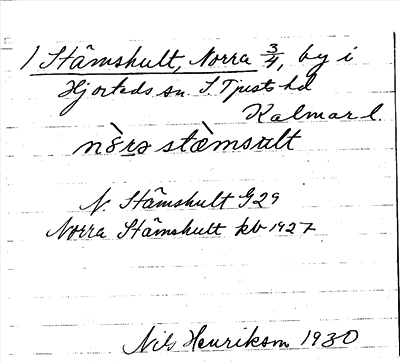 1 Stämshult, Norra 3/4, by i
Hjorteds sn. S. Tjusts hd
Kalmar l.
nòrə stæ̀msult
N. Stämshult G29
Norra Stämshult kb 1927
Nils Henrikson 1930